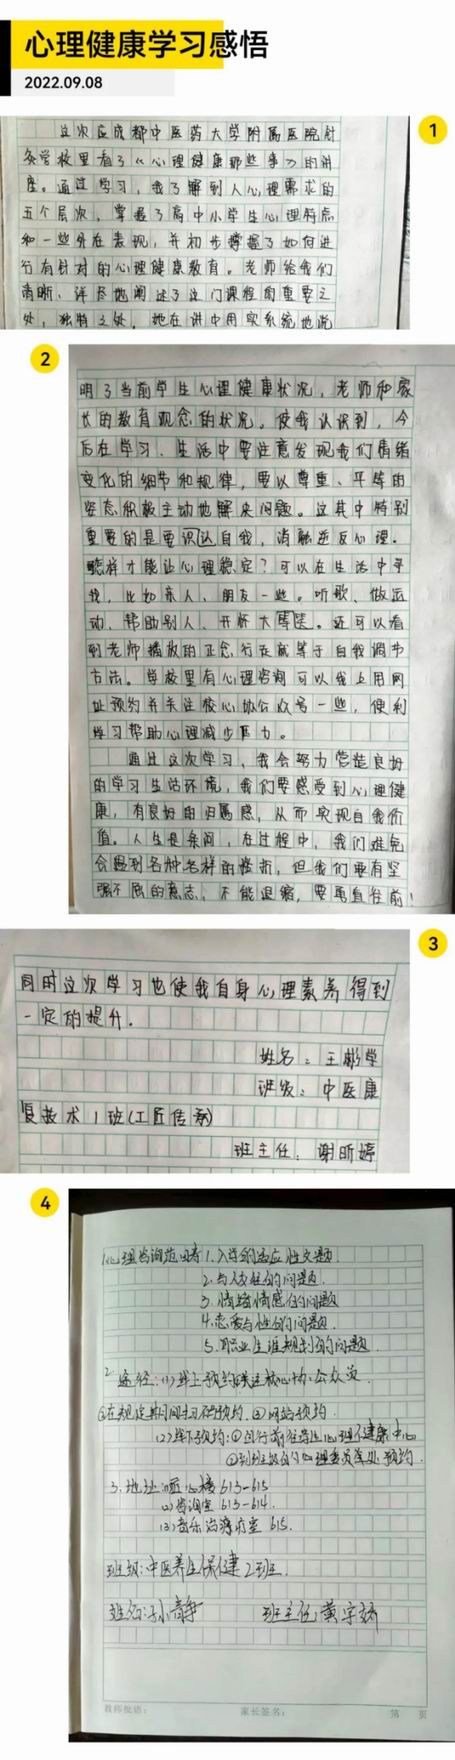 心理健康学习感悟
2022.09.08
1
这次在成都中医药大学附属医院针
灸学校里看了《心理健康那些事》的讲
座。通过学习，我了解到人心理需求的
五个层次，掌握了高中小学生心理特点
和一些外在表现，并初步掌握了如何进
行有针对的心理健康教育。老师给我们
清晰、详尽地阐述了这门课程的重要之
处，独特之处。她在讲中用实系统地说
2
明了当前学生心理健康状况，老师和家
长的教育观念的状况。使我认识到，今
后在学习、生活中要注意发现我们情绪
变化的细节和规律，要以尊重、平等的
姿态积极主动地解决问题。这其中特别
重要的是要识达自我，消融逆反心理。
怎样才能让心理稳定？可以在生活中寻
找，比如亲人、朋友一些。听歌、做运
动、帮助别人、开怀大笑。还可以看
到老师播放的正念行走就等于自我调节
方法。学校里有心理咨询可以线上用网
址预约并关注校心协公众号一些，便利
学习帮助心理减少压力。
通过这次学习，我会努力营造良好
的学习生活环境，我们要感受到心理健
康，有良好的归属感，从而实现自我价
值。人生是条河，在过程中，我们难免
会遇到各种各样的挫折，但我们要有坚
强不屈的意志，不能退缩，要勇往直前！
3
同时这次学习也使我自身心理素养得到
一定的提升。
姓名：王彬学
班级：中医康
复技术1班(工匠传承)
班主任：谢昕婷
4
1.心理咨询范围有1.入学的适应性问题.
2.与人交往的问题.
3.情绪情感的问题
4.恋爱与性的问题.
5.职业生涯规划的问题.
2.途径:(1)线上预约关注校心协公众号
②网站预约.
(2)线下预约:①自行前往学生心理健康中心
②到班级的心理委员处预约.
3.地址:匠心楼613-615
(2)咨询室613-614.
(3)音乐治疗室615.
班级:中医养生保健2班.
姓名:孙静 班主任:黄宇娇
教师批语： 家长签名： 第 页